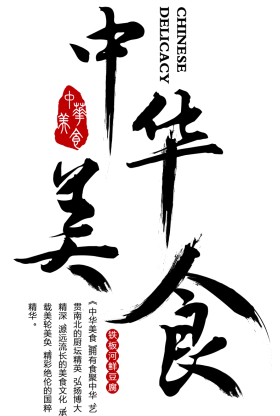 中华美食
CHINESE
DELICACY
中華美食
铁板河鲜豆腐
《中华美食》拥有食聚中华、艺
贯南北的厨坛精英，弘扬博大
精深、源远流长的美食文化，承
载美轮美奂、精彩绝伦的国粹
精华。